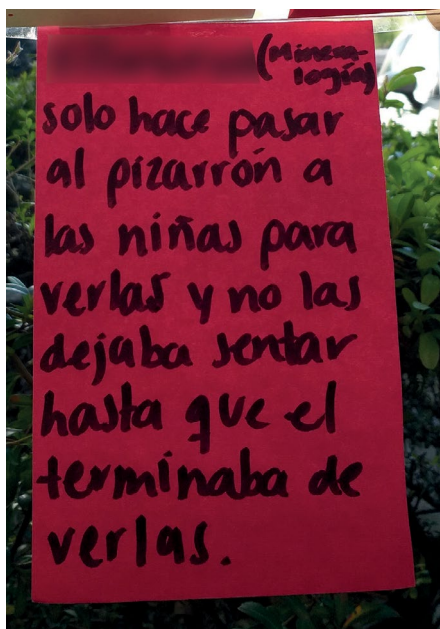 (Minera-
logía)
solo hace pasar
al pizarrón a
las niñas para
verlas y no las
dejaba sentar
hasta que el
terminaba de
verlas.